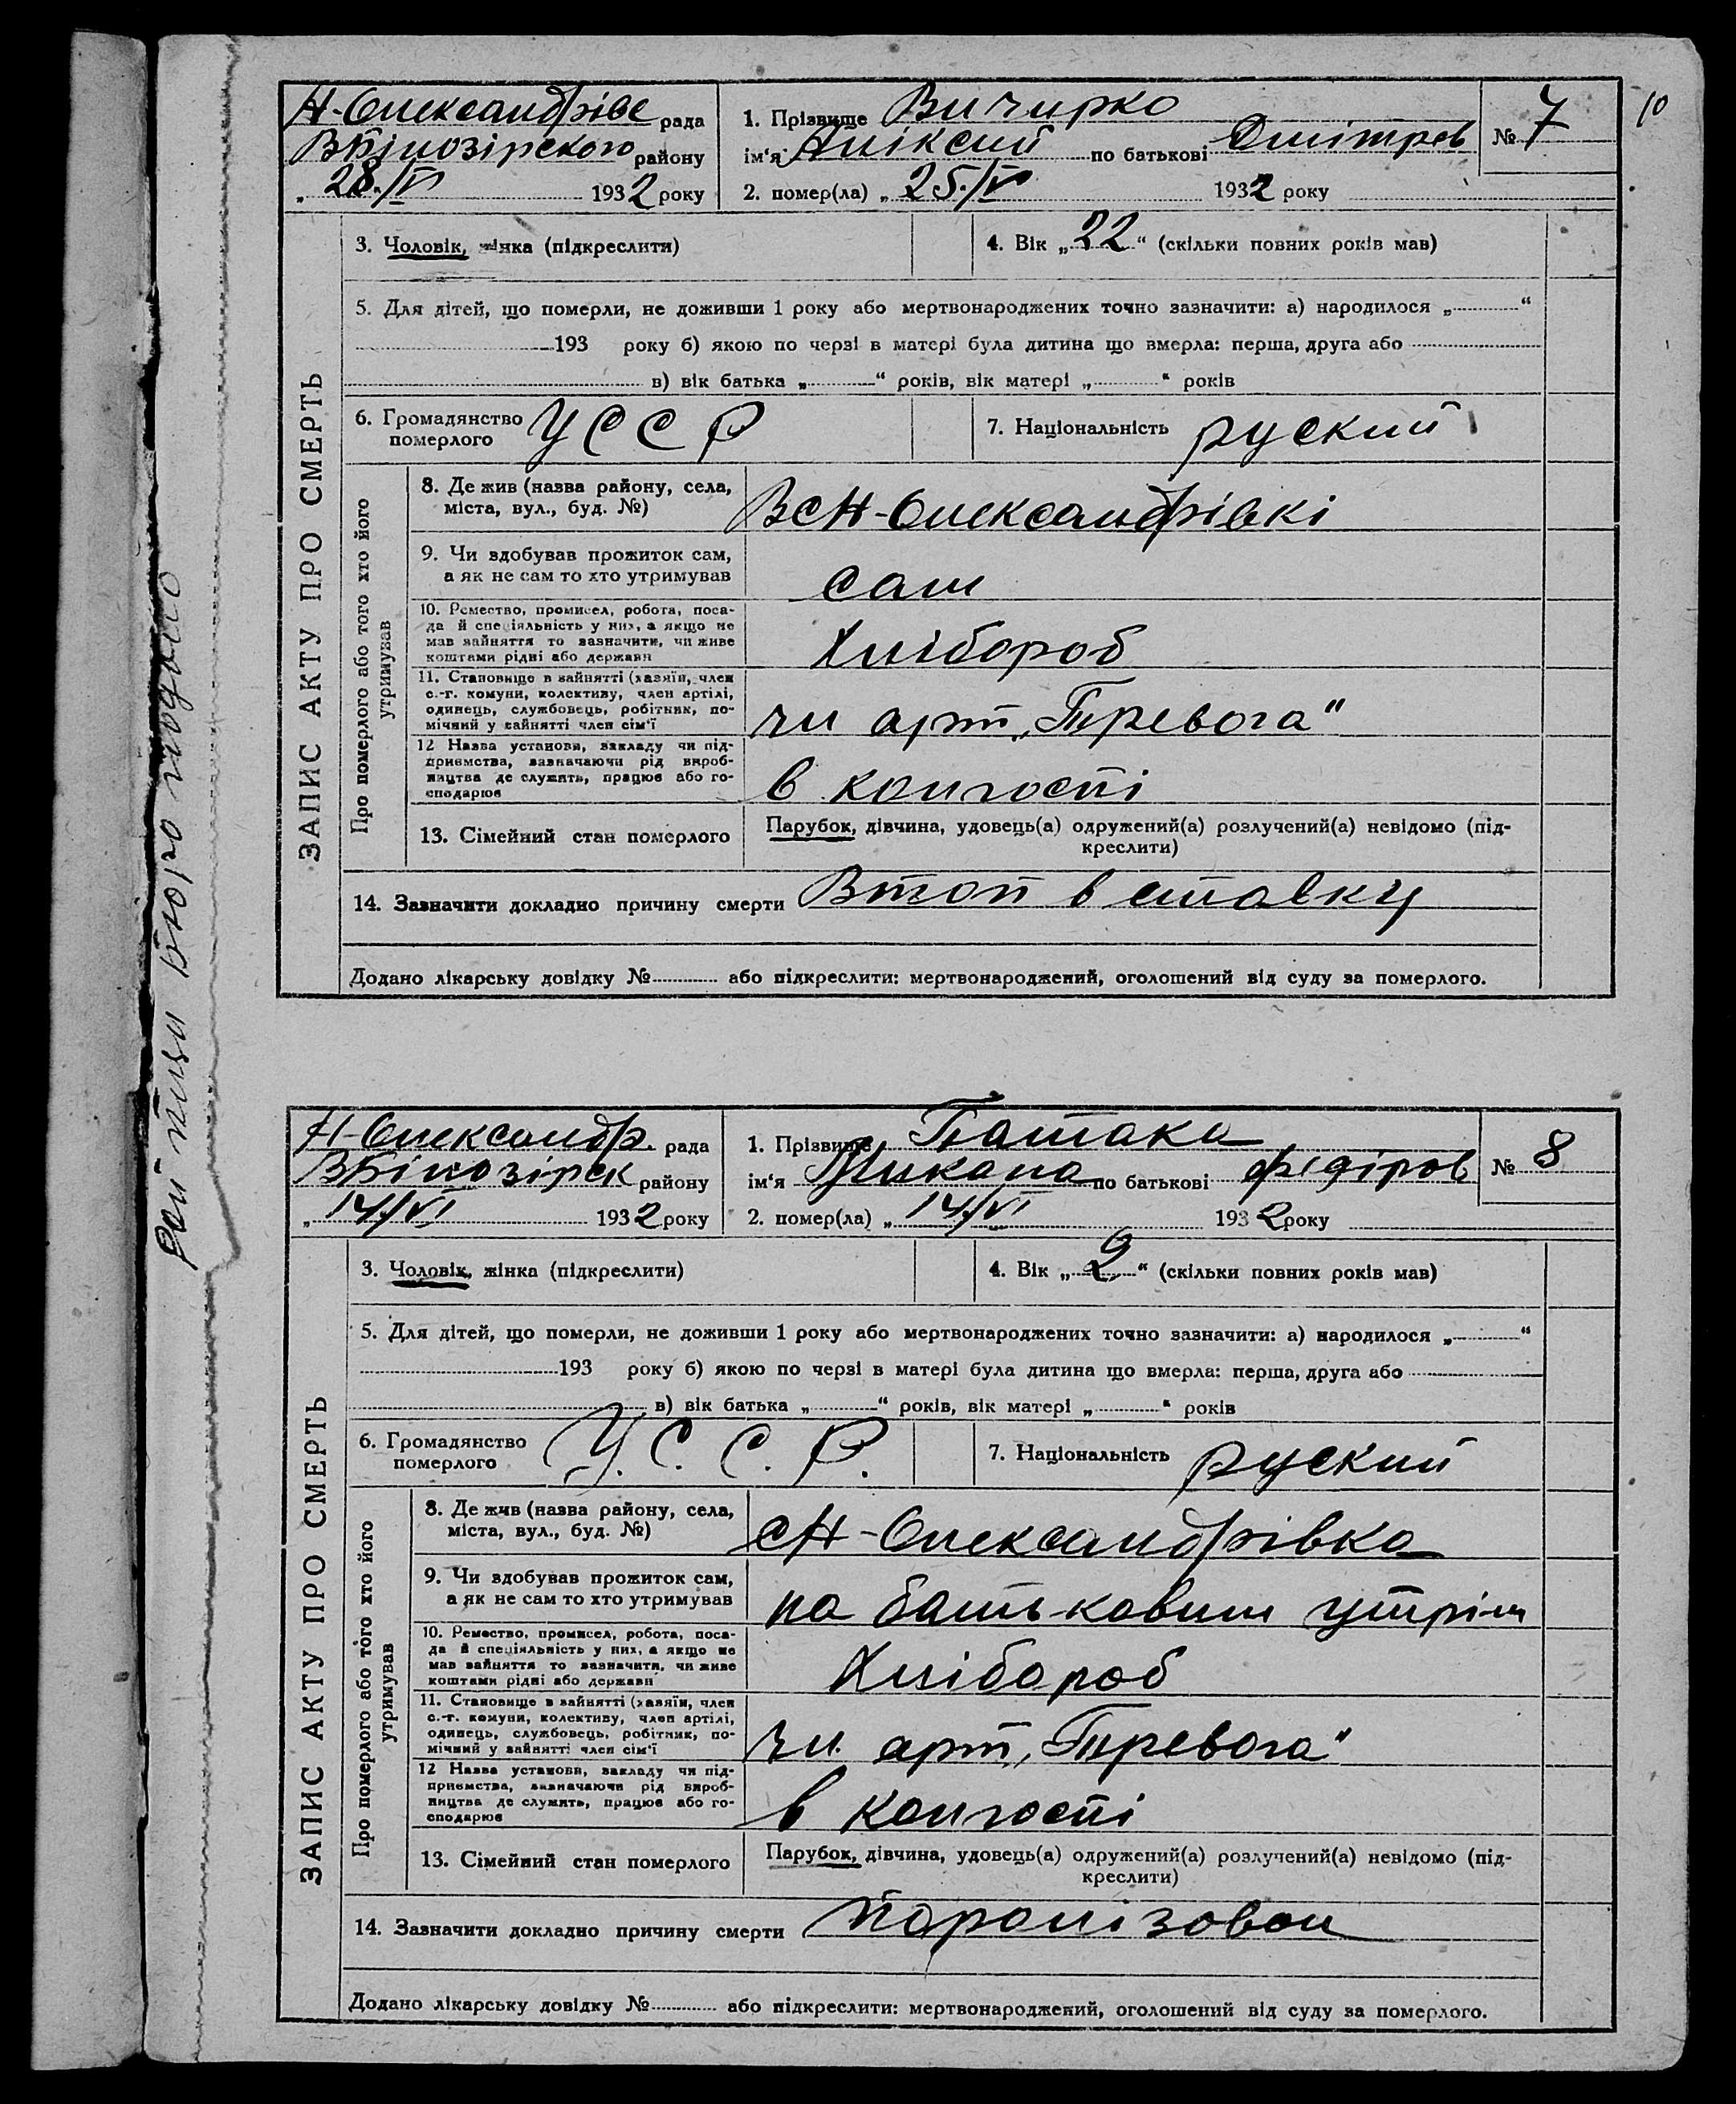 10
Н-Олександрівс рада
ВБілозірского району
„ 28./V 1932 року
1. Прізвище Вичирко
ім'я Аліксий по батькові Дмітров
2. помер(ла) „ 25./V 1932 року
№ 7
ЗАПИС АКТУ ПРО СМЕРТЬ
3. Чоловік, жінка (підкреслити)
4. Вік „ 22 “ (скільки повних років мав)
5. Для дітей, що померли, не доживши 1 року або мертвонароджених точно зазначити: а) народилося „ “
193 року б) якою по черзі в матері була дитина що вмерла: перша, друга або
в) вік батька „ “ років, вік матері „ “ років
6. Громадянство
померлого УССР
7. Національність руский
Про померлого або того хто його
утримував
8. Де жив (назва району, села,
міста, вул., буд. №) В с Н-Олександрівкі
9. Чи здобував прожиток сам,
а як не сам то хто утримував сам
10. Ремество, промисел, робота, поса-
да й спеціяльність у них, а якщо не
мав зайняття то зазначити, чи живе
коштами рідні або держави Хлібороб
11. Становище в зайнятті (хазяїн, член
с.-г. комуни, колективу, член артілі,
одинець, службовець, робітник, по-
мічний у зайнятті член сім'ї чл арт „Тревога“
12 Назва установи, закладу чи під-
приємства, зазначаючи рід вироб-
ництва де служить, працює або го-
сподарює в колгоспі
13. Сімейний стан померлого
Парубок, дівчина, удовець(а) одружений(а) розлучений(а) невідомо (під-
креслити)
14. Зазначити докладно причину смерти Втоп в ставку
Додано лікарську довідку № або підкреслити: мертвонароджений, оголошений від суду за померлого.
Н-Олександр. рада
ВБілозірск району
„ 14/VI 1932 року
1. Прізвище Батака
ім'я Микола по батькові Федіров
2. помер(ла) „ 14/VI 1932 року
№ 8
ЗАПИС АКТУ ПРО СМЕРТЬ
3. Чоловік, жінка (підкреслити)
4. Вік „ 9 “ (скільки повних років мав)
5. Для дітей, що померли, не доживши 1 року або мертвонароджених точно зазначити: а) народилося „ “
193 року б) якою по черзі в матері була дитина що вмерла: перша, друга або
в) вік батька „ “ років, вік матері „ “ років
6. Громадянство
померлого У.С.С.Р.
7. Національність руский
Про померлого або того хто його
утримував
8. Де жив (назва району, села,
міста, вул., буд. №) с Н-Олександрівка
9. Чи здобував прожиток сам,
а як не сам то хто утримував на батьковим утрім
10. Ремество, промисел, робота, поса-
да й спеціяльність у них, а якщо не
мав зайняття то зазначити, чи живе
коштами рідні або держави Хлібороб
11. Становище в зайнятті (хазяїн, член
с.-г. комуни, колективу, член артілі,
одинець, службовець, робітник, по-
мічний у зайнятті член сім'ї чл. арт „Тревога“
12 Назва установи, закладу чи під-
приємства, зазначаючи рід вироб-
ництва де служить, працює або го-
сподарює в колгоспі
13. Сімейний стан померлого
Парубок, дівчина, удовець(а) одружений(а) розлучений(а) невідомо (під-
креслити)
14. Зазначити докладно причину смерти паролізован
Додано лікарську довідку № або підкреслити: мертвонароджений, оголошений від суду за померлого.